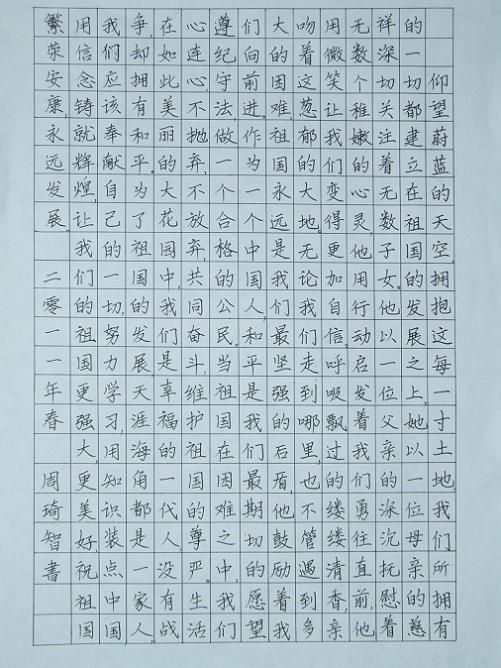 仰望蔚蓝的天空,拥抱这每一寸土地,我们所拥有
的一切都建立在祖国的发展之上,她以一位母亲的慈
祥深切关注着无数子女。他以一位父亲的深沉托慰着
无数个稚嫩的心灵,他用行动启发着我们勇往直前,他
用微笑让我们变得更加自信。呼吸飘过的缕缕清香,亲
吻着这葱郁的大地。无论我们走到哪里,也不管遇到多
大的困难,祖国永远是我们最坚强的后盾,他鼓励着我
们向前进。作为一个中国人,和平是我们最期切的愿望
遵纪守法,做一个合格的公民。当祖国在困难之中,我们
心连心,不抛弃,不放弃,共同奋斗,维护祖国的尊严。生活
在如此美丽的大花园中,我们是辜福的一代人,没有战
争,却拥有和平。为了祖国的发展天涯海角都是一家人。
我们应该奉献自己的一切,努力学习,用知识装点中国,
用信念铸就辉煌让我们的祖国更强大,更美好,祝祖国
繁荣安康,永远发展。二零一一年春周琦智書